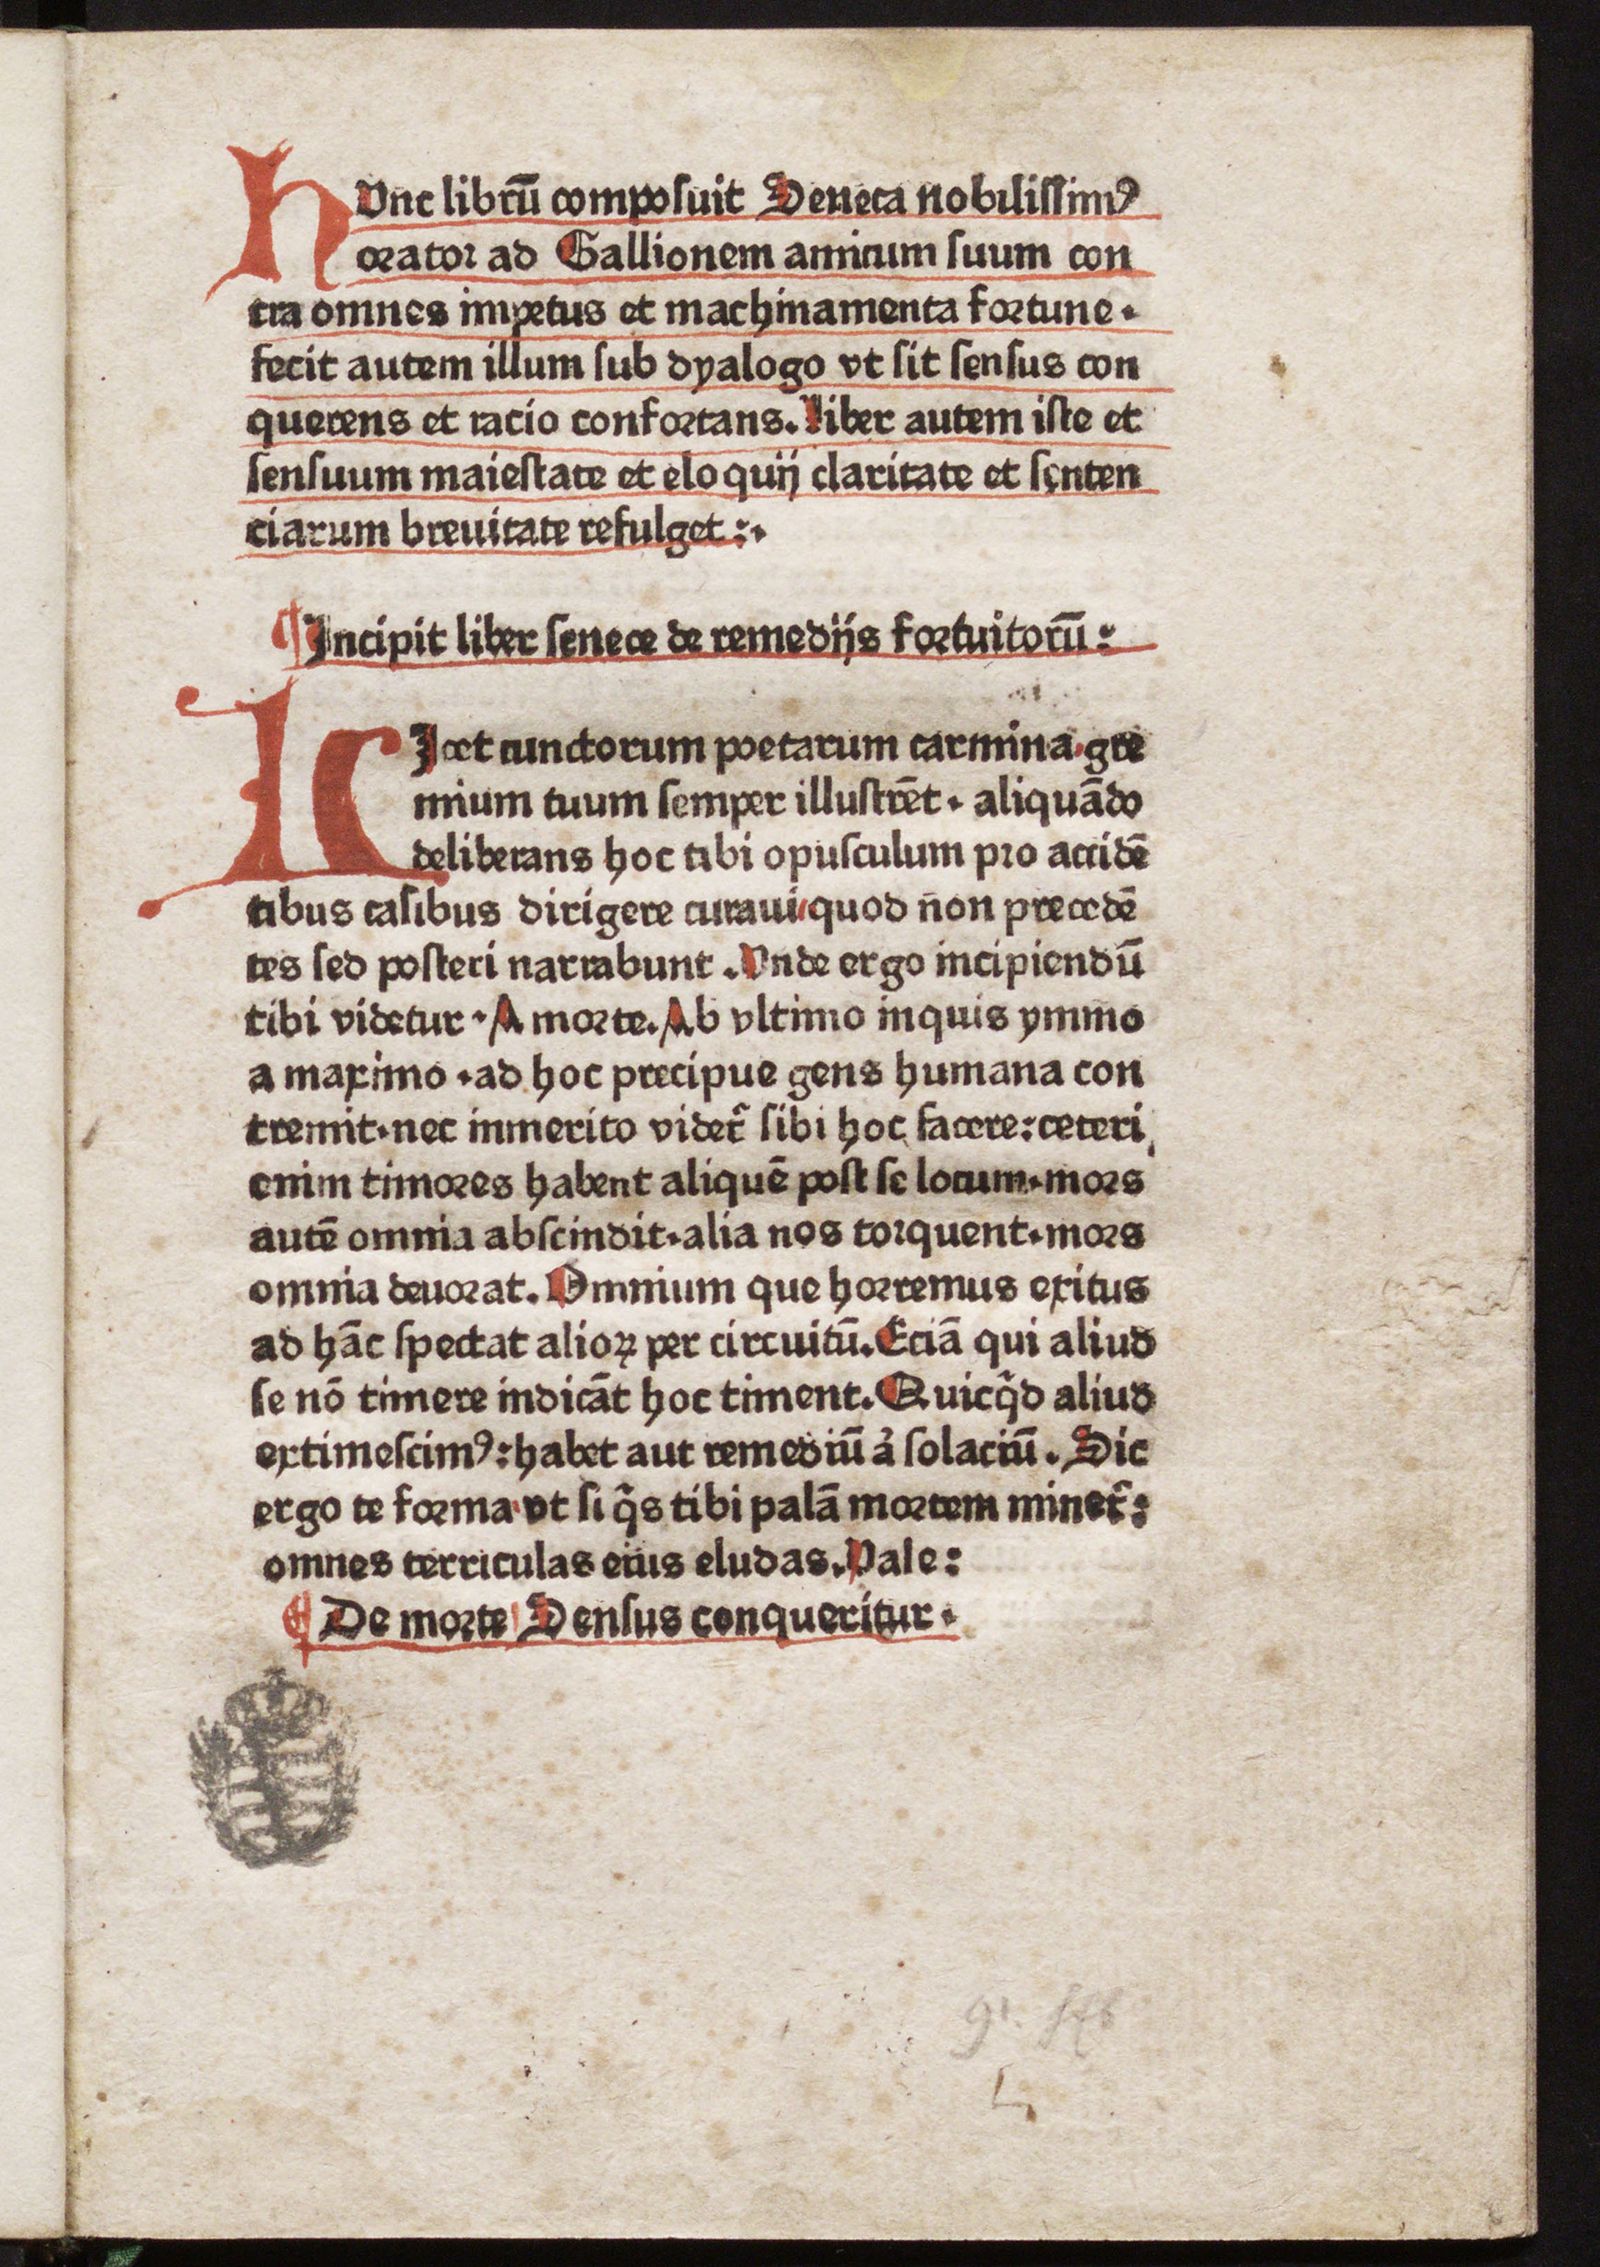 hVnc librū composuit Seneca nobilissimꝰ
orator ad Gallionem amicum suum con
tra omnes impetus et machinamenta fortune·
fecit autem illum sub dyalogo vt sit sensus con
querens et racio confortans. liber autem iste et
sensuum maiestate et eloquij claritate et senten
ciarum breuitate refulget:·
¶ Incipit liber senece de remedijs fortuitorū:
LIcet cunctorum poetarum carmina gre
mium tuum semper illustrēt· aliquādo
deliberans hoc tibi opusculum pro accidē
tibus casibus dirigere curaui/quod non precedē
tes sed posteri narrabunt. Vnde ergo incipiendū
tibi videtur· A morte. Ab vltimo inquis ymmo
a maximo ·ad hoc precipue gens humana con
tremit·nec inmerito videt᷑ sibi hoc facere: ceteri
enim timores habent aliquē post se locum·mors
autē omnia abscindit·alia nos torquent·mors
omnia deuorat. Omnium que horremus exitus
ad hāc spectat alioꝝ per circuitū. Eciā qui aliud
se nō timere indicāt hoc timent. Quicq̄d aliud
extimescimꝰ: habet aut remediū a̓ solaciū. Sic
ergo te forma vt si q̄s tibi palā mortem minet᷑:
omnes terriculas eius eludas. Vale:
¶ De morte Sensus conqueritur·